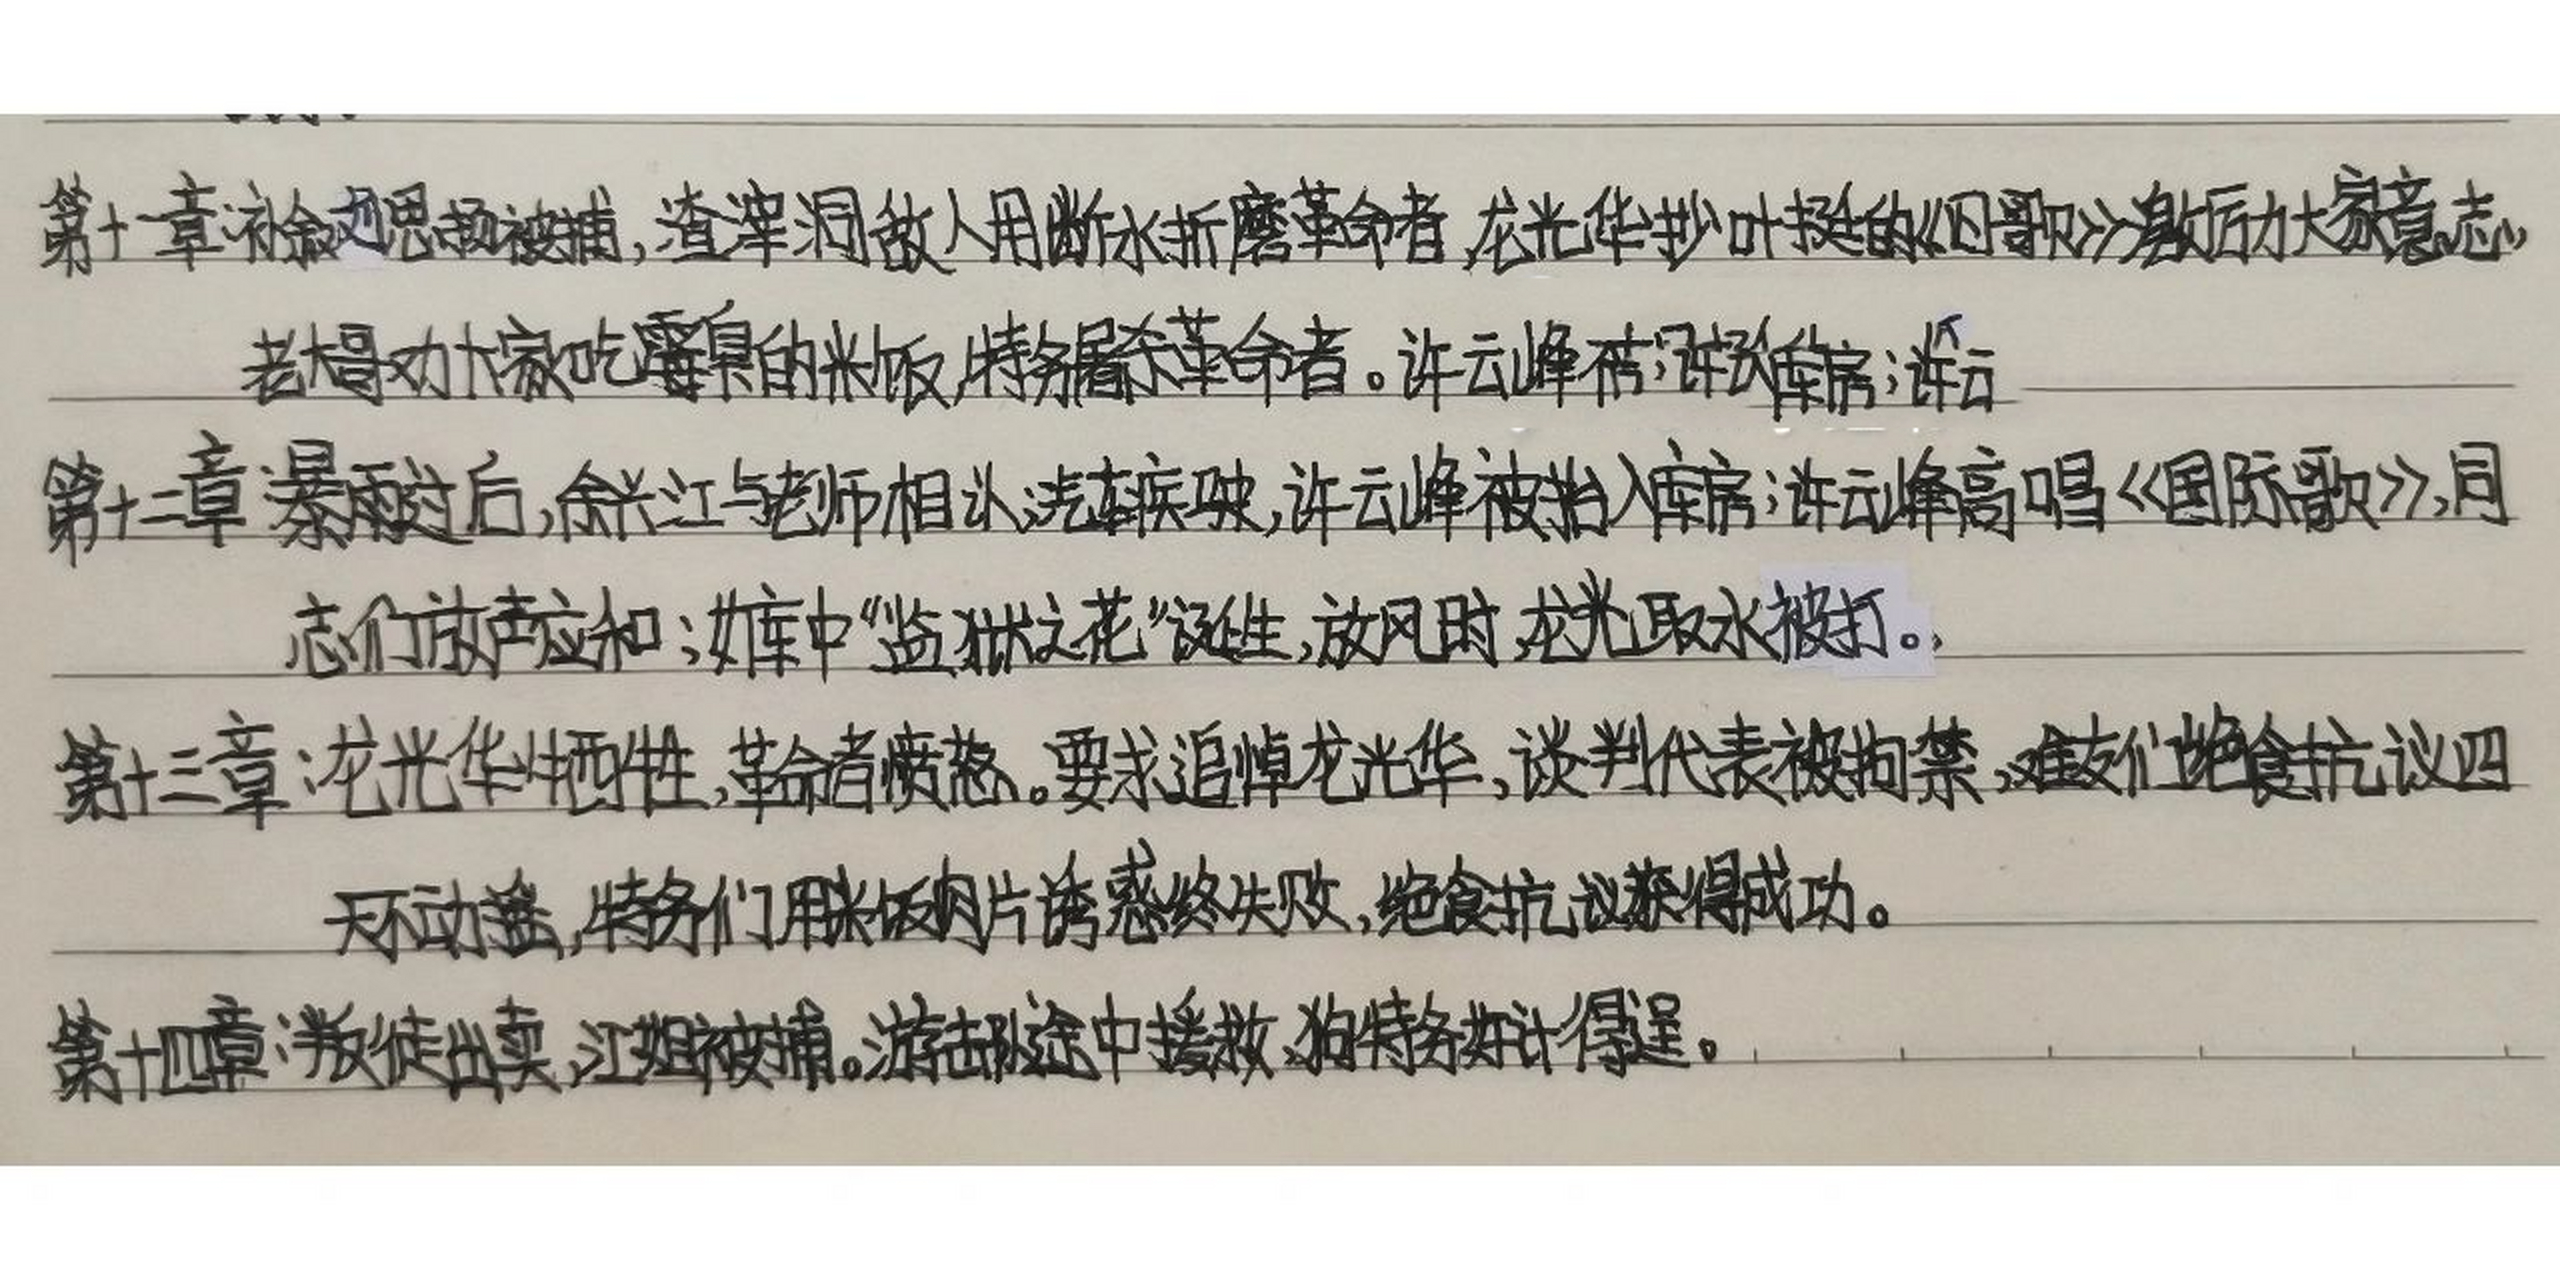 第十一章:补叙刘思扬被捕,渣滓洞敌人用断水折磨革命者,龙光华抄叶挺的《囚歌》激励大家意志,
老大哥劝大家吃霉臭的米饭,特务屠杀革命者。许云峰;许云库房;许云
第十二章:暴雨过后,余兴江与老师相认;汽车疾驶,许云峰被抬入库房;许云峰高唱《国际歌》,同
志们放声应和;女牢中“监狱之花”诞生,放风时,龙光取水被打。,
第十三章:龙光华牺牲,革命者愤怒。要求追悼龙光华,谈判代表被拘禁,难友们绝食抗议四
天不动摇,特务们用米饭肉片诱惑终失败,绝食抗议获得成功。
第十四章:叛徒出卖,江姐被捕。游击队途中援救,狗特务奸计得逞。